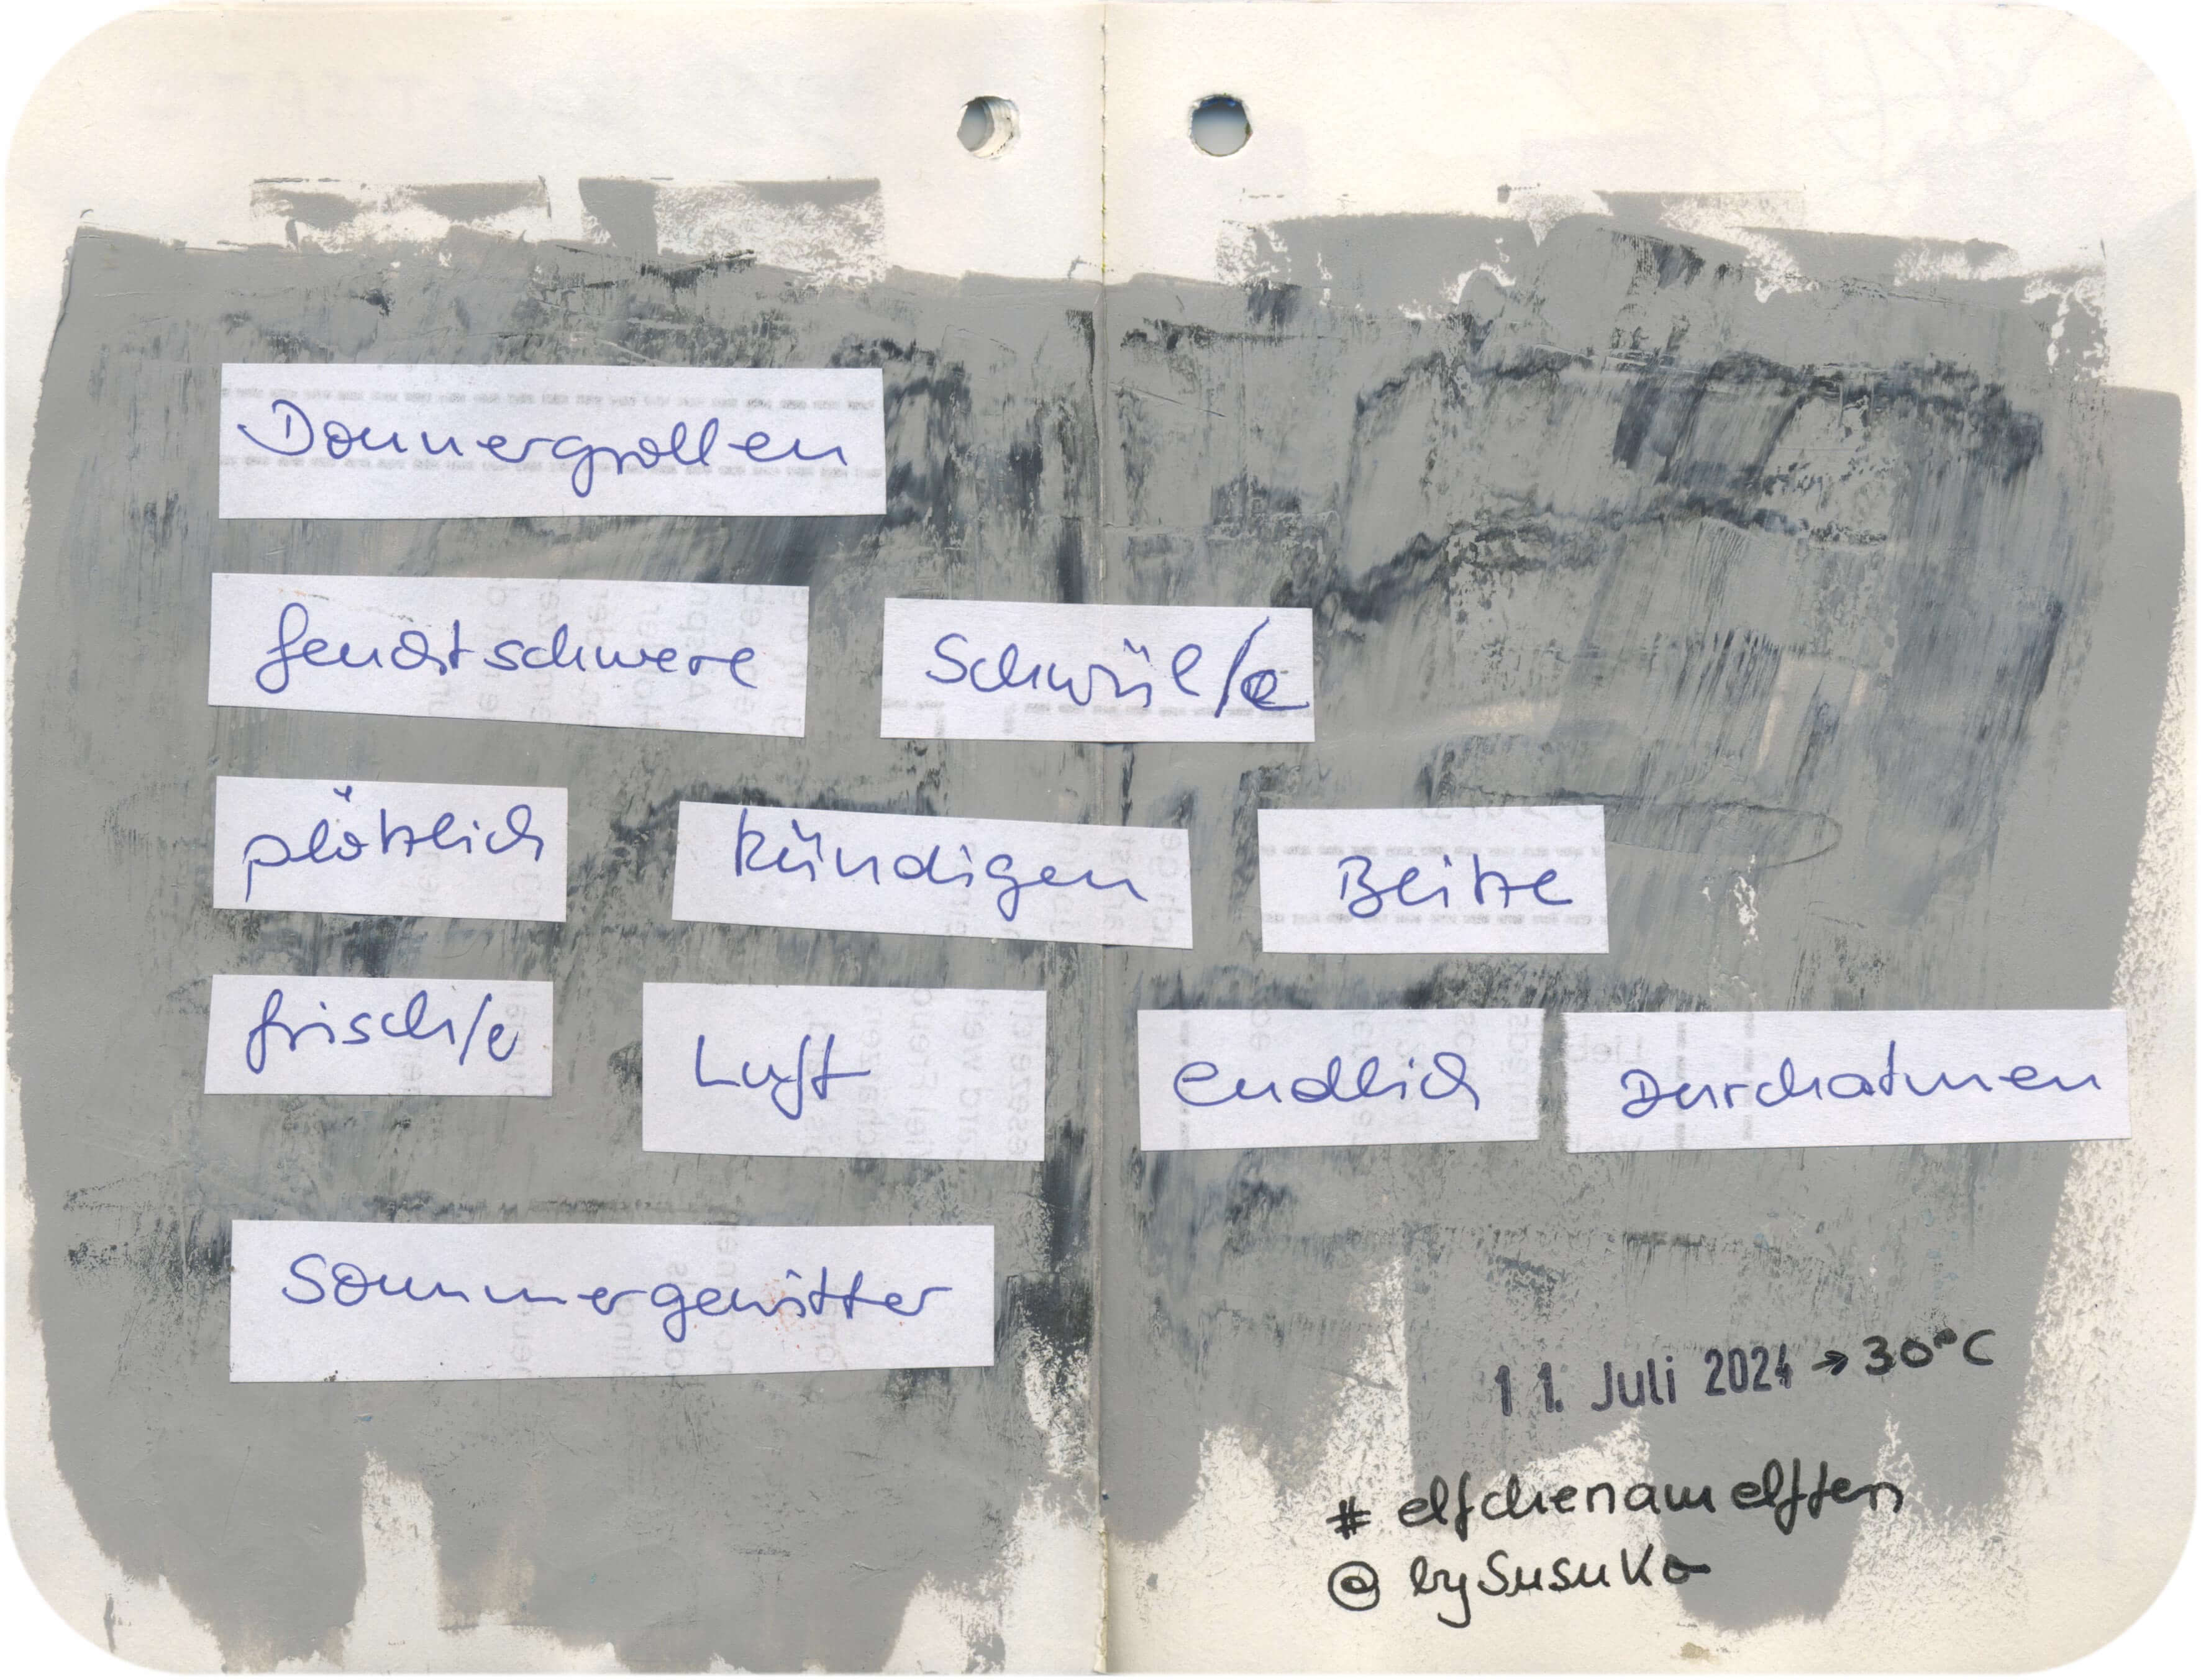 Donnergrollen
feuchtschwere Schwül/e
plötzlich kündigen Beitze
frisch/e Luft endlich Durchatmen
Sommergewitter
11. Juli 2024 → 30°C
# elfchenamelften
@ bySusuKo